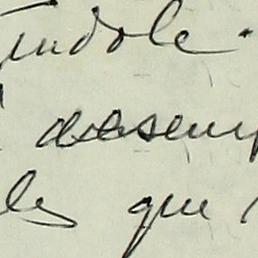 índole.
desemp
les que